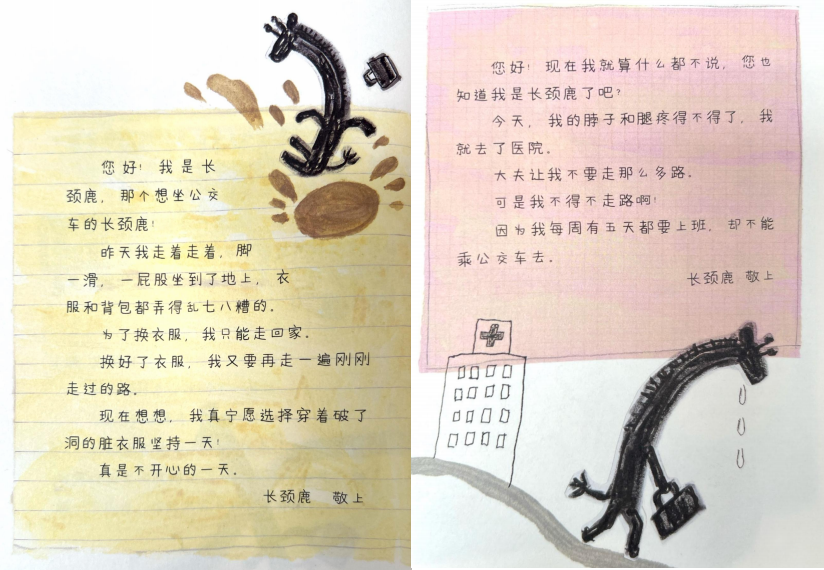 您好！我是长
颈鹿，那个想坐公交
车的长颈鹿！
昨天我走着走着，脚
一滑，一屁股坐到了地上，衣
服和背包都弄得乱七八糟的。
为了换衣服，我只能走回家。
换好了衣服，我又要再走一遍刚刚
走过的路。
现在想想，我真宁愿选择穿着破了
洞的脏衣服坚持一天！
真是不开心的一天。
长颈鹿 敬上
您好！现在我就算什么都不说，您也
知道我是长颈鹿了吧？
今天，我的脖子和腿疼得不得了，我
就去了医院。
大夫让我不要走那么多路。
可是我不得不走路啊！
因为我每周有五天都要上班，却不能
乘公交车去。
长颈鹿 敬上